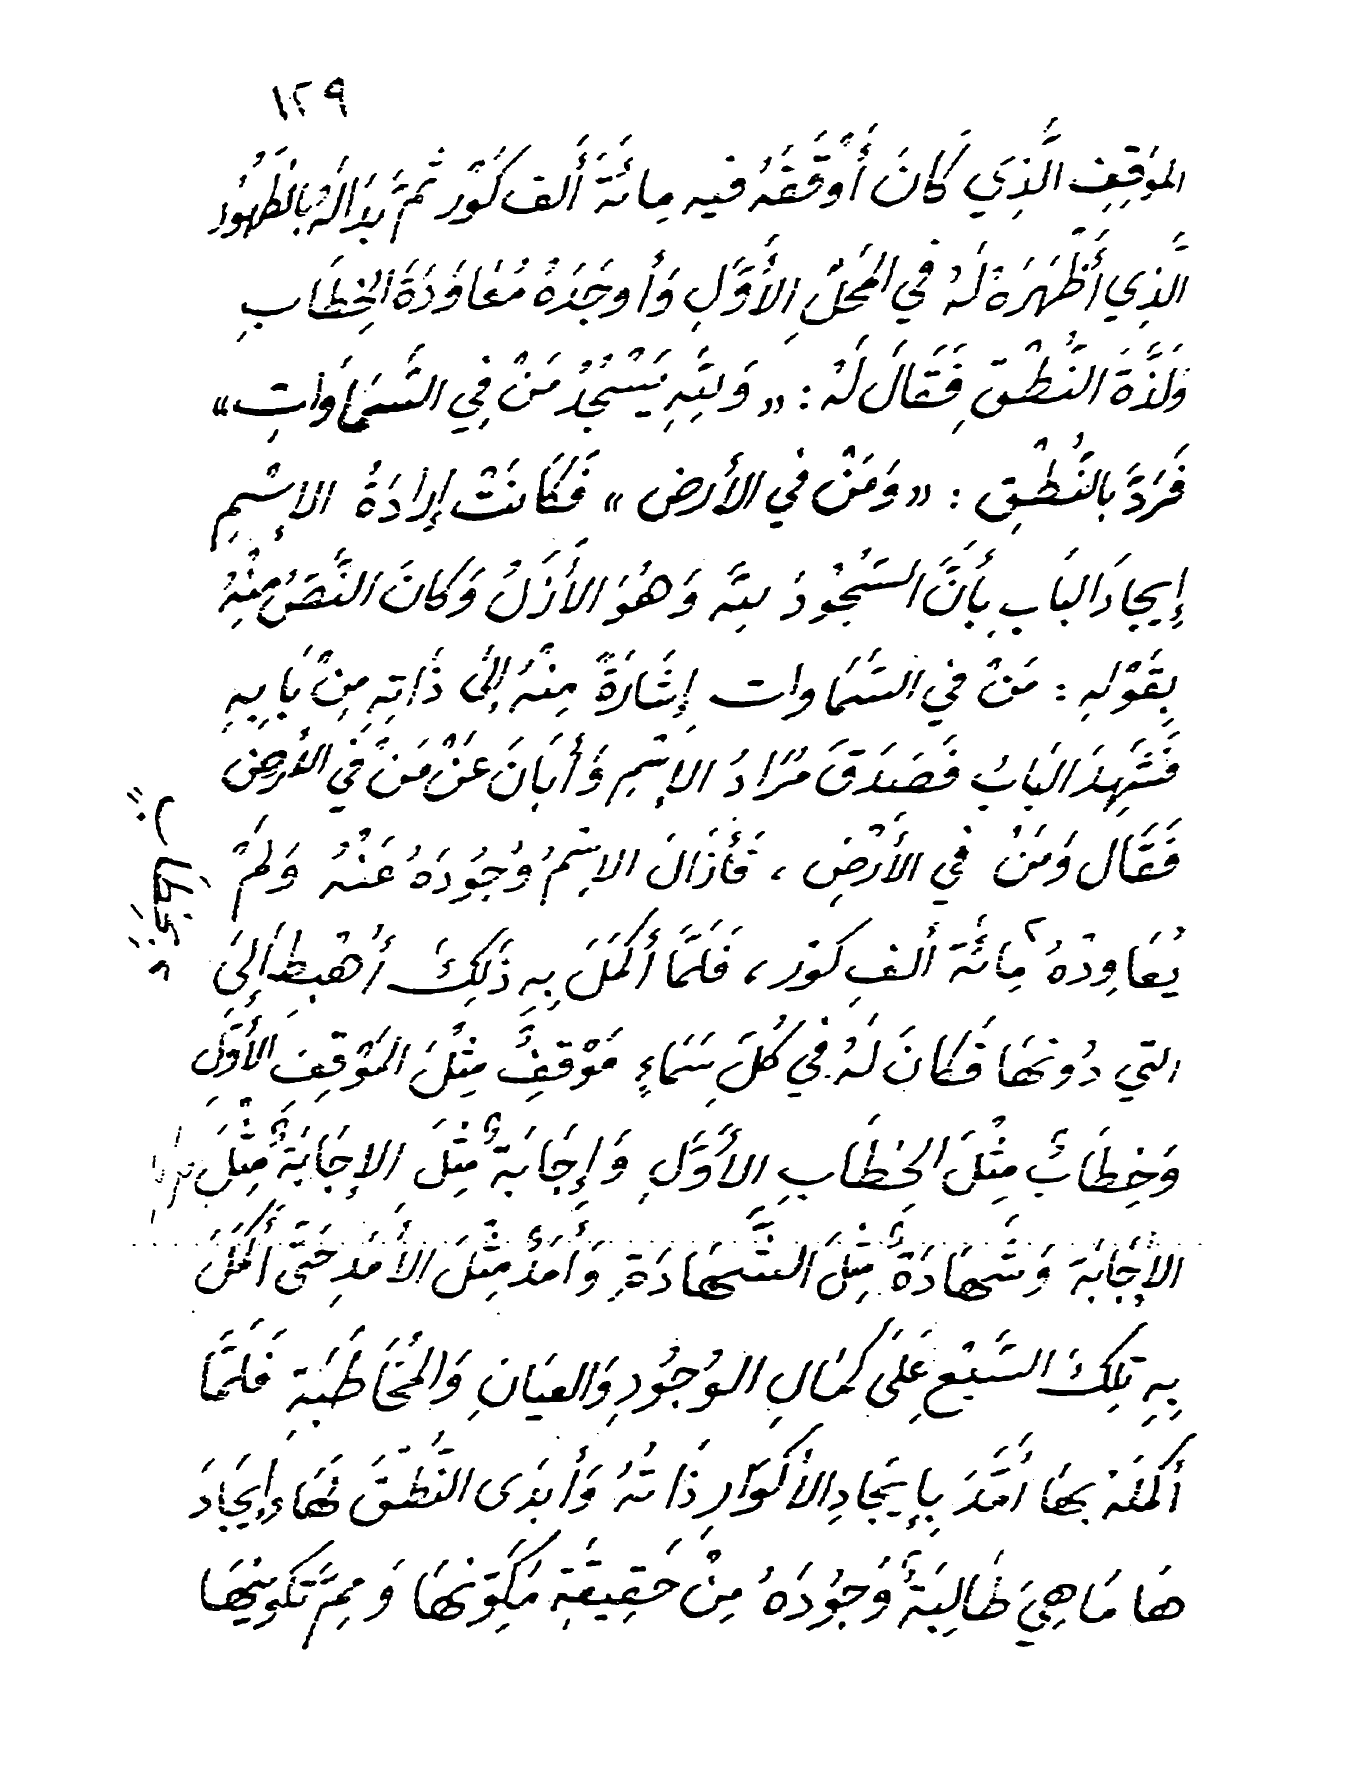 ١٢٩
الموَقِفِ الَّذِي كَانَ أَوْقَفَهُ فيه مِائةَ أَلف كَوْر ثمَّ بدَالهُ بالظُهُور
الَّذِي أَظْهَرَهُ لَهُ في المَحَلِّ الأَوَّلِ وَأَوجَدَهُ مُعَاوَدَةَ الخِطَابِ
وَلَذَّةَ النُّطْقِ فَقَالَ لَهُ : « وَللَّهِ يَسْجُدُ مَنْ فِي السَّمَاوَاتِ »
فَرَدَّ بالنُّطْقِ : « وَمَنْ في الأَرض » فَكَانَتْ إِرادَةُ الإِسْمِ
إِيجادَ البَابِ بِأَنَّ السُّجُودُ للَّه وَهُوَ الأَزَلُ وَكانَ النَّصُ مِنْهُ
بِقَوْلهِ : مَنْ في السَّمَاوات إِشَارَةً مِنْهُ إِلَى ذَاتِهِ مِنْ بَابِهِ
فَشَهِدَ البَابُ فَصَدَقَ مُرَادُ الإِسْمِ وَأَبَانَ عَنْ مَنْ في الأَرضِ
فَقَال وَمَنْ في الأَرْضِ ، فَأَزَالَ الإِسْمُ وُجُودَهُ عَنْهُ وَلَمْ
يُعَاوِدْهُ مِائَةَ أَلفِ كَوْر ، فَلَمَّا أَكْمَلَ بِهِ ذَلِكَ أَهْبطَ إِلَى
التي دُونهَا فَكانَ لَهُ في كُلِّ سَمَاءٍ مَوْقِفٌ مِثْلَ المَوْقِفِ الأَوَّلِ
وَخِطَابٌ مِثْلَ الخِطَابِ الأَوَّلِ وَإِجَابَةٌ مِثْلَ الإِجَابَةُ مِثْلَ
الإِجَابَةَ وَشَهَادَةٌ مِثْلَ الشَّهَادَةِ وَأَمَدٌ مِثْلَ الأَمَدِ حَتَّى أَكْمَلَ
بِهِ تلِكَ السَّبْعِ عَلَى كَمَالِ الوُجُودِ وَالعيَانِ وَالمُخَاطَبَةِ فَلَمَّا
أَكملَهُ بهَا أَمَدَّ بِإِيجَادِ الأَكْوَارِ ذَاتهُ وَأَبدَى النُّطْقَ لهَا وَإِيجَادَ
هَا مَا هِيَ طَالِبَةٌ وُجُودَهُ مِنْ حَقِيقَةِ مَكوِّنهَا وَمِمَّ تكوِينِهَا
بخِطَابٍ